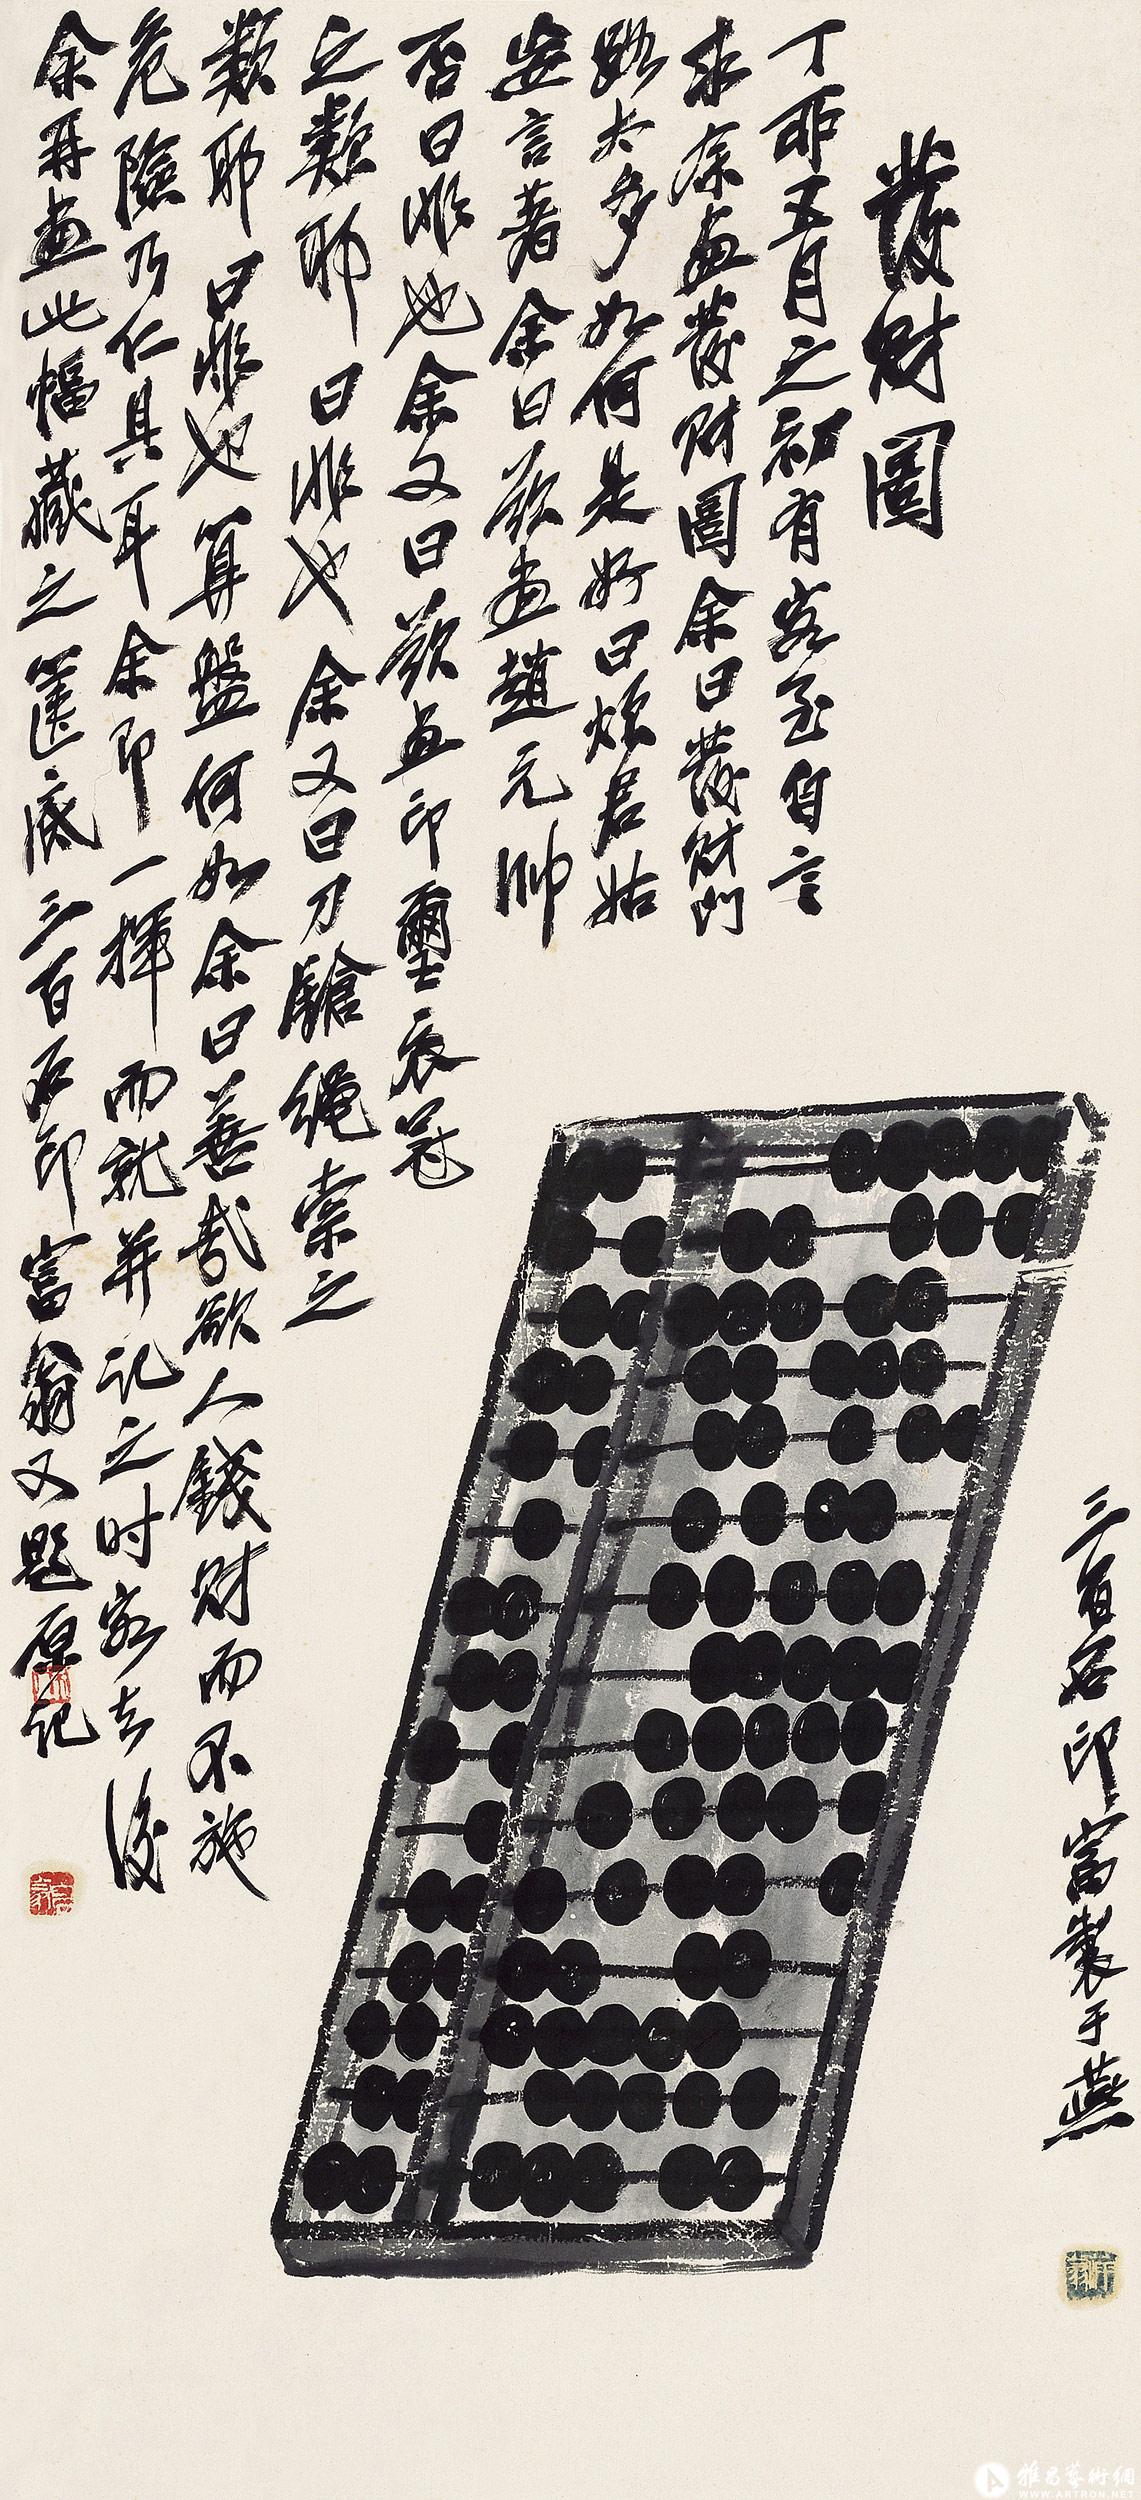 發財圖
丁卯五月之初有客至自言
求余畫發財圖余曰發財門
路太多如何是好曰煩君姑
妄言著余曰欲畫趙元帥
否曰非也余又曰欲畫印璽衣冠
之類耶曰非也余又曰刀鎗繩索之
類耶曰非也算盤何如余曰善哉欲人錢財而不施
危險乃仁具耳余即一揮而就并記之時客去後
余再畫此幅藏之篋底三百石印富翁又題原記
三百石印富製于燕
雅昌藝術網
WWW.ARTRON.NET